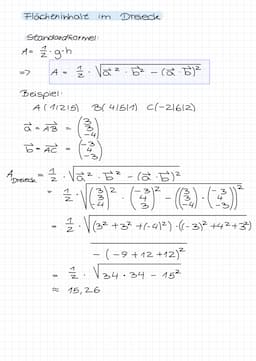 Flächeninhalt im Dreieck
Standardformel:
A = 1/2 · g · h
=> A = 1/2 · √(a⃗² · b⃗² − (a⃗ · b⃗)²)
Beispiel:
A (1|2|5) B(4|5|1) C(−2|6|2)
a⃗ = AB⃗ = (3 3 −4)
b⃗ = AC⃗ = (−3 4 −3)
A Dreieck = 1/2 · √(a⃗² · b⃗² − (a⃗ · b⃗)²)
= 1/2 · √((3 3 −4)² · (−3 4 3)² − ((3 3 −4) · (−3 4 −3))²)
= 1/2 · √((3² + 3² + (−4)²) · ((−3)² + 4² + 3²)
− (−9 + 12 + 12)²
= 1/2 · √(34 · 34 − 15²)
≈ 15,26